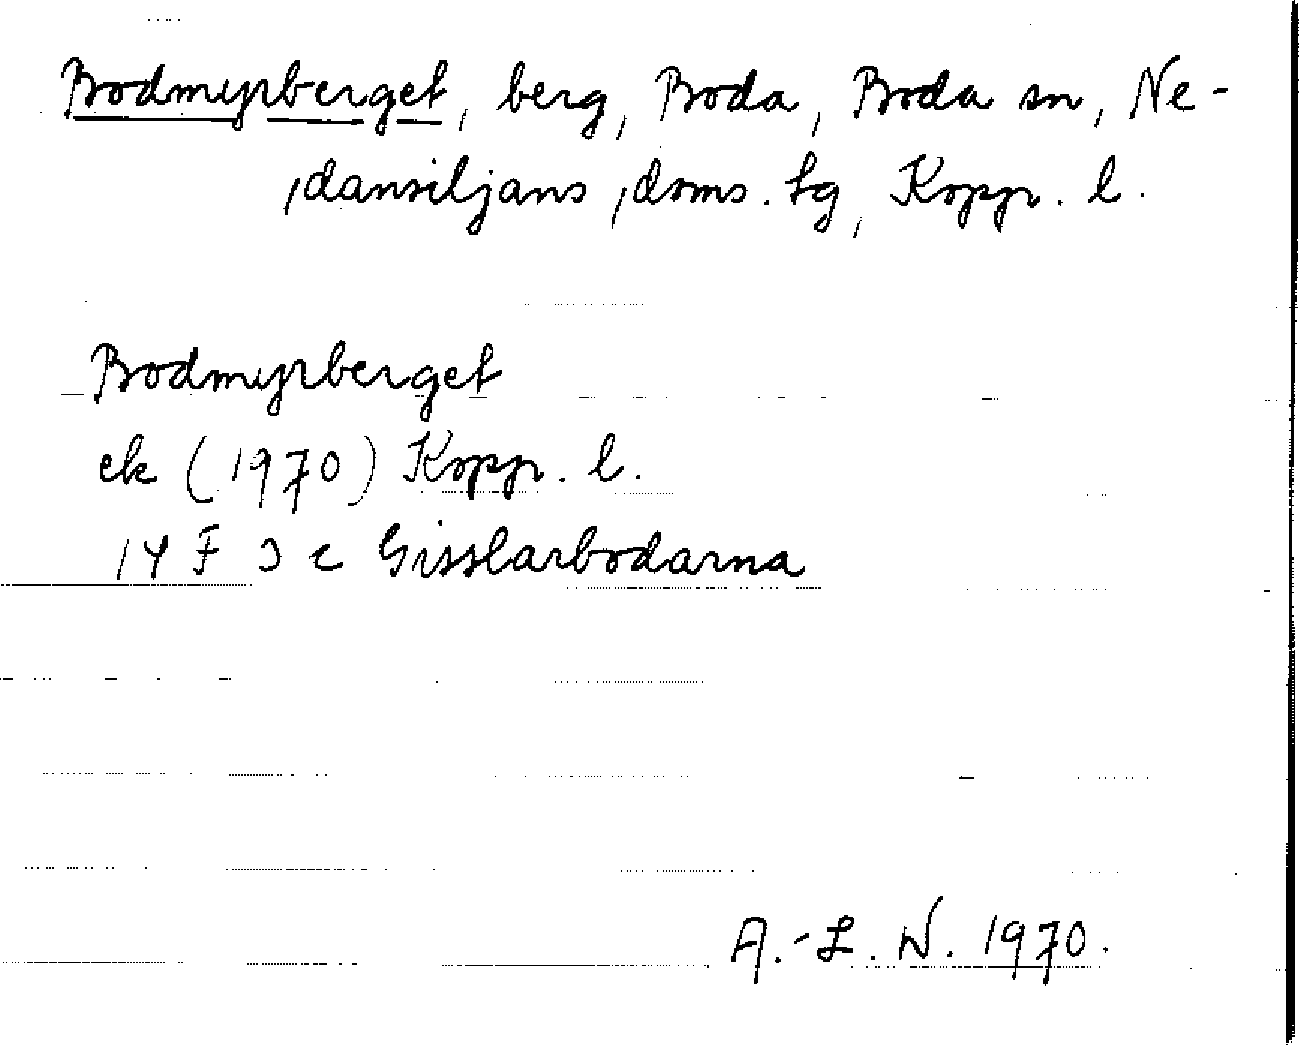 Bodmyrberget, berg, Boda, Boda sn, Ne-
dansiljans doms. tg, Kopp. l.
Bodmyrberget
ek (1970) Kopp. l.
14 F 3 c Gisslarbodarna
A.-L. N. 1970.